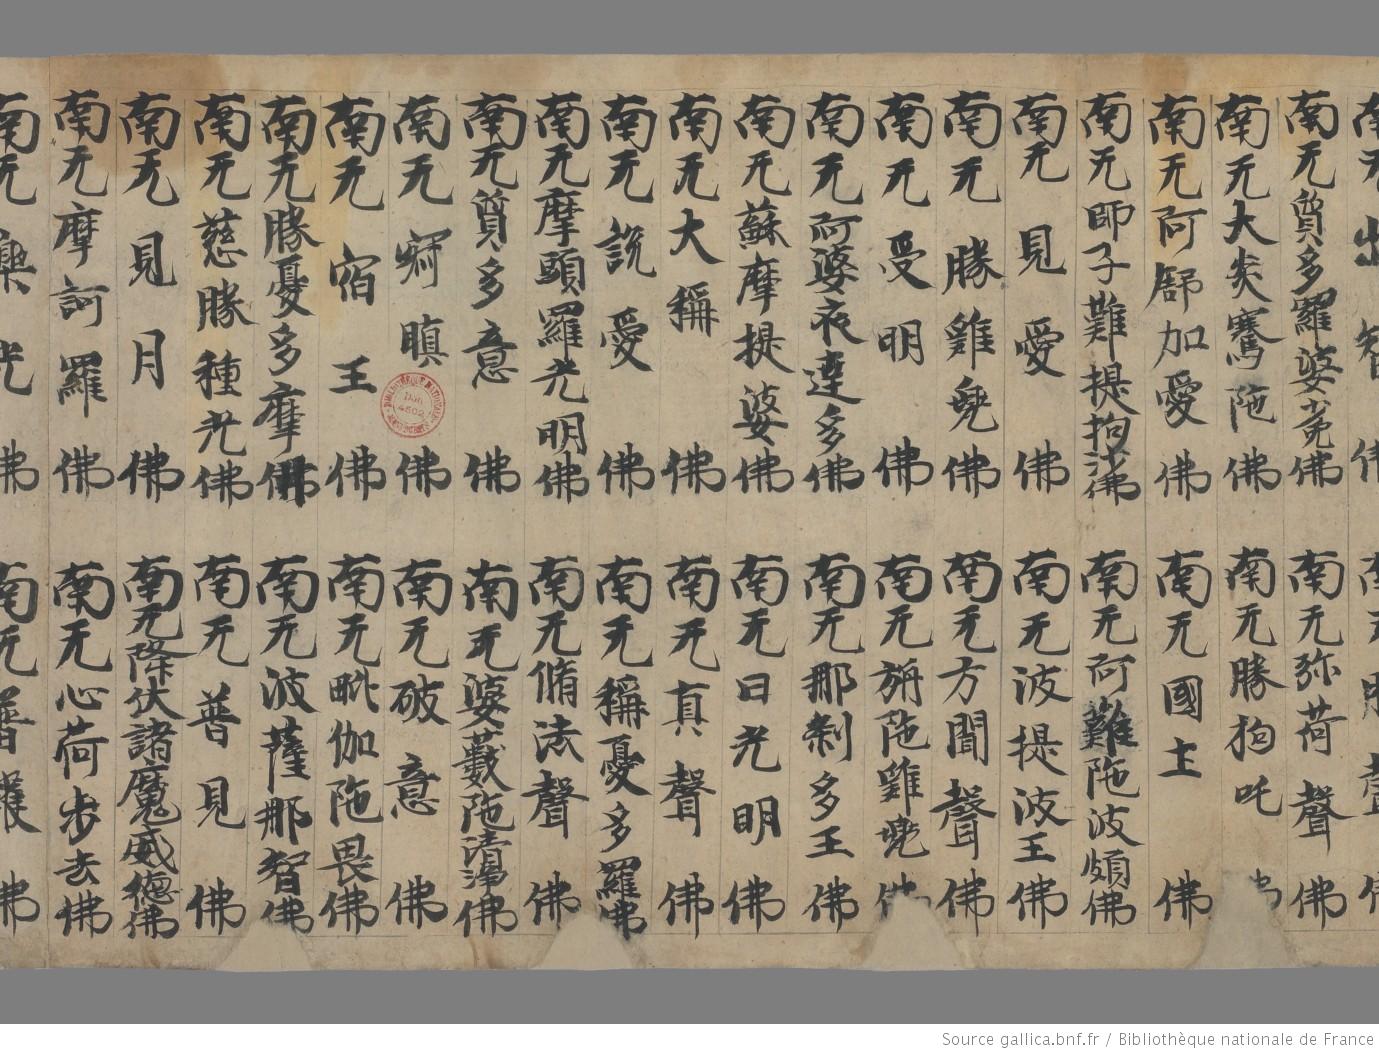 南无出智佛
南无質多羅婆㝹佛
南无大炎騫陁佛
南无阿舒加愛佛
南无師子難提拘沙佛
南无見愛佛
南无勝雞兜佛
南无受明佛
南无阿婆夜達多佛
南无蘇摩提婆佛
南无大稱佛
南无說愛佛
南无摩頭羅光明佛
南无質多意佛
南无瞋佛
南无宿王佛
南无勝憂多摩佛
南无慈勝種光佛
南无見月佛
南无摩訶羅佛
南无光佛
南无聲佛
南无弥荷聲佛
南无勝拘吒佛
南无國土佛
南无阿難陁波頗佛
南无波提波王佛
南无方聞聲佛
南无旃陁雞兜佛
南无那剎多王佛
南无日光明佛
南无真聲佛
南无稱憂多羅佛
南无脩法聲佛
南无婆藪陁清淨佛
南无破意佛
南无毗伽陁畏佛
南无波薩那智佛
南无普見佛
南无降伏諸魔威德佛
南无心荷步去佛
南无普護佛
BIBLIOTHÈQUE NATIONALE
Don 4502
MANUSCRITS
Source gallica.bnf.fr / Bibliothèque nationale de France